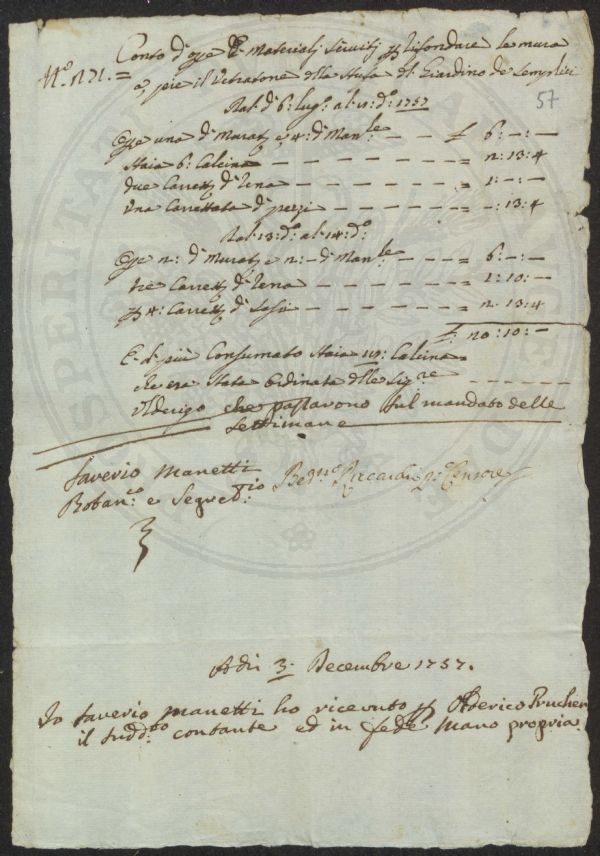 N.° 121. = Conto d'op.e e Materiali serviti p rifondare le mura
e, fare il Vetratone della Stufa del Giardino de Semplici
57
Dal: d' 6: lug.° al: 11: d.° 1757
Op.e una d' Murat.i e, 4: d' Man.le — — £ 6: —: —
Staia 6: Calcina — — — — — — = 2: 13: 4
due Carrett.e d' rena — — — — — = 1: —: —
una Carrettata d' pezzi — — — — — = —: 13: 4
Dal: 13: d.° al: 14: d.°
Op.e 2: d' Murat.i e 2: — d' Man.le — — = 6: —: —
tre Carrett.e d' rena — — — — — = 1: 10: —
p 4: Carrett.e d' Sassi — — — — — = 2: 13: 4
£ 20: 10: —
E d' più Consumato Staia 19: Calcina
che era stata Ordinata dalle Sig.re
Ulderigo che passavono sul mandato delle
Settimane
Saverio Manetti
Botan.co e Segret.rio
Ben.o Riccardi p.° Censore
Adì 3. Decembre 1757.
Io Saverio Manetti ho ricevuto p Olderico Prucher
il sudd.to contante ed in fede Mano propria.